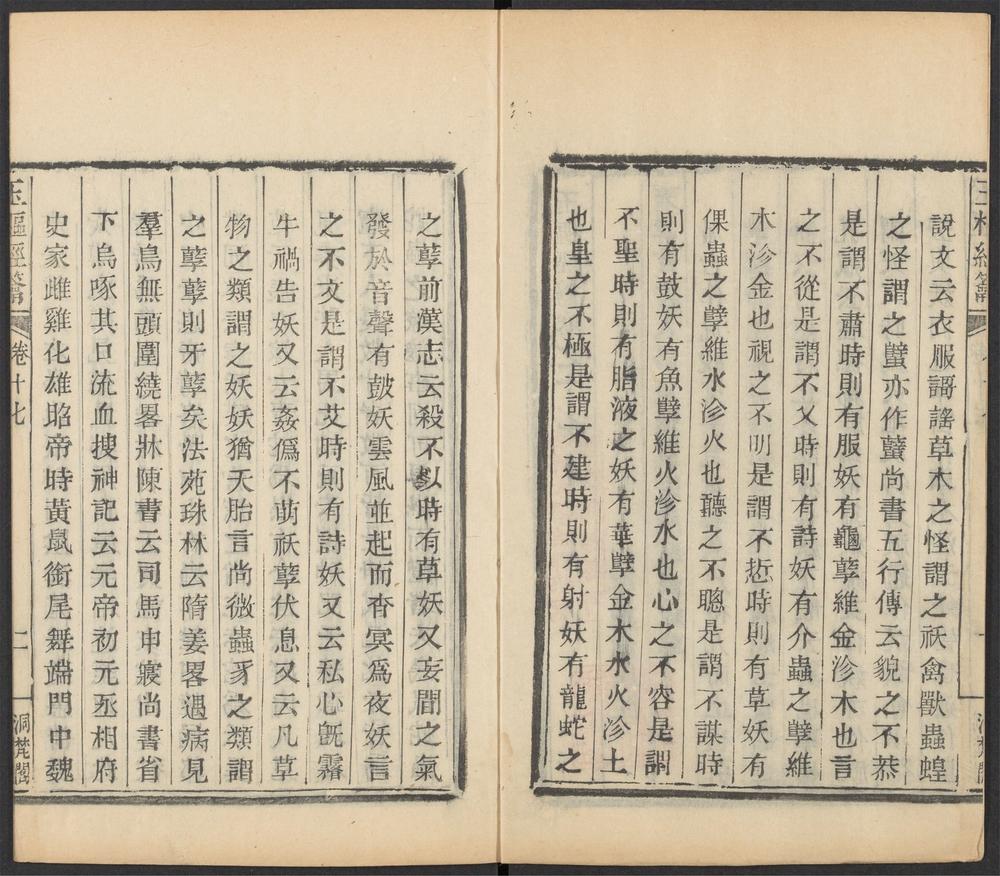 說文云衣服謌謠草木之怪謂之祅禽獸蟲蝗
之怪謂之蠥亦作蠥尚書五行傳云貌之不恭
是謂不肅時則有服妖有龜孽維金沴木也言
之不從是謂不乂時則有詩妖有介蟲之孽維
木沴金也視之不明是謂不悊時則有草妖有
倮蟲之孽維水沴火也聽之不聰是謂不謀時
則有鼓妖有魚孽維火沴水也心之不容是謂
不聖時則有脂液之妖有華孽金木水火沴土
也皇之不極是謂不建時則有射妖有龍蛇之
之孽前漢志云殺不以時有草妖又妄間之氣
發於音聲有鼓妖雲風並起而杳冥為夜妖言
之不文是謂不艾時則有詩妖又云私心旣霿
牛禍告妖又云姦僞不萌祅孽伏息又云凡草
物之類謂之妖妖猶天胎言尚微蟲豸之類謂
之孽孽則牙孽矣法苑珠林云隋姜畧遇病見
羣鳥無頭圍繞畧牀陳書云司馬申寢尚書省
下烏啄其口流血搜神記云元帝初元丞相府
史家雌雞化雄昭帝時黃鼠銜尾舞端門中魏
玉樞經籥
卷十七
二
洞梵閣